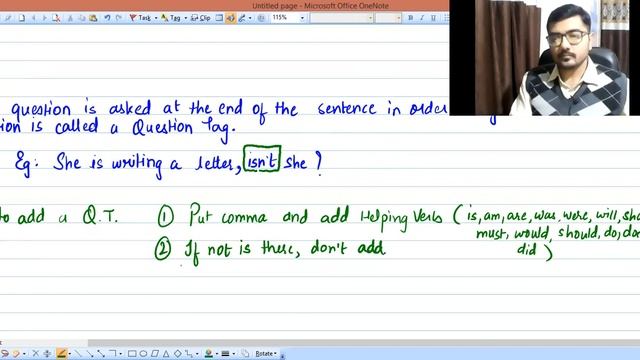 Untitled page - Microsoft Office OneNote
Task
Tag
Clip
115%
question is asked at the end of the sentence in order
is called a Question Tag.
Eg: She is writing a letter, isn't she?
to add a Q.T. ① Put comma and add Helping Verbs (is, am, are, was, were, will,
must, would, should, do,
② If not is there, don't add did)
Rotate